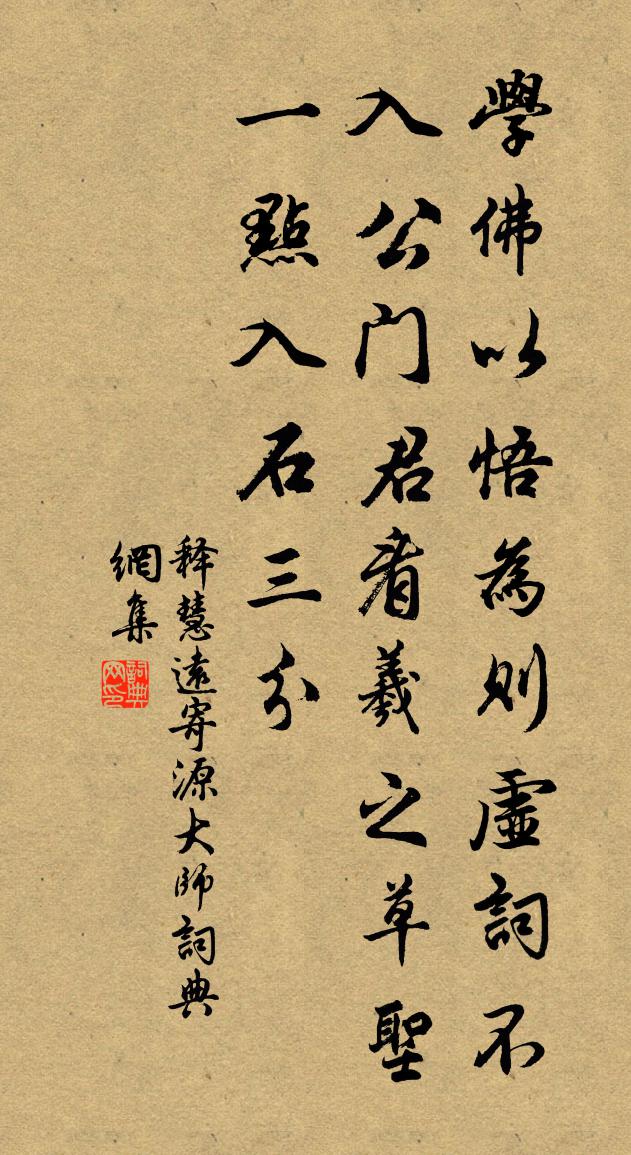 學佛以悟為則虛詞不
入公門君看羲之草聖
一點入石三分
释慧遠寄源大師詞典
網集
詞典
网印